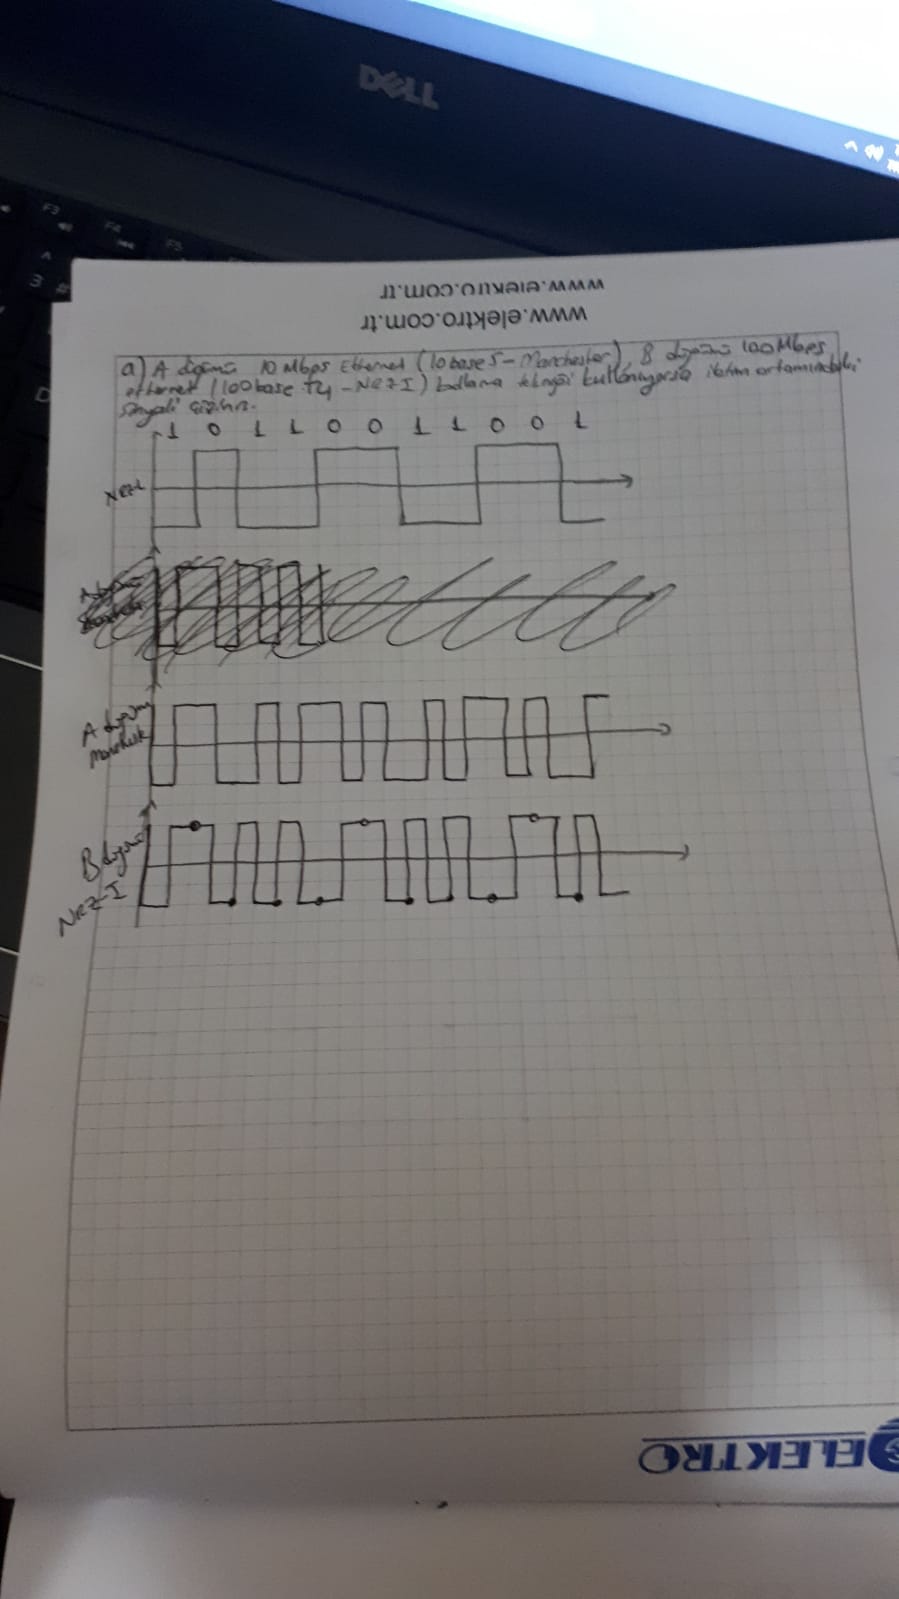 DELL
F3
F4
F5
3 #
www.elektro.com.tr
www.elektro.com.tr
a) A düğümü 10 Mbps Ethernet (10base5 - Manchester), B düğümü 100Mbps
ethernet (100base - NRZ-I) kodlama tekniği kullanıyorsa iletim ortamındaki
sinyali çiziniz.
1 0 1 1 0 0 1 1 0 0 1
NRZ-L
A düğümü
Manchester
B düğümü
NRZ-I
ELEKTRO